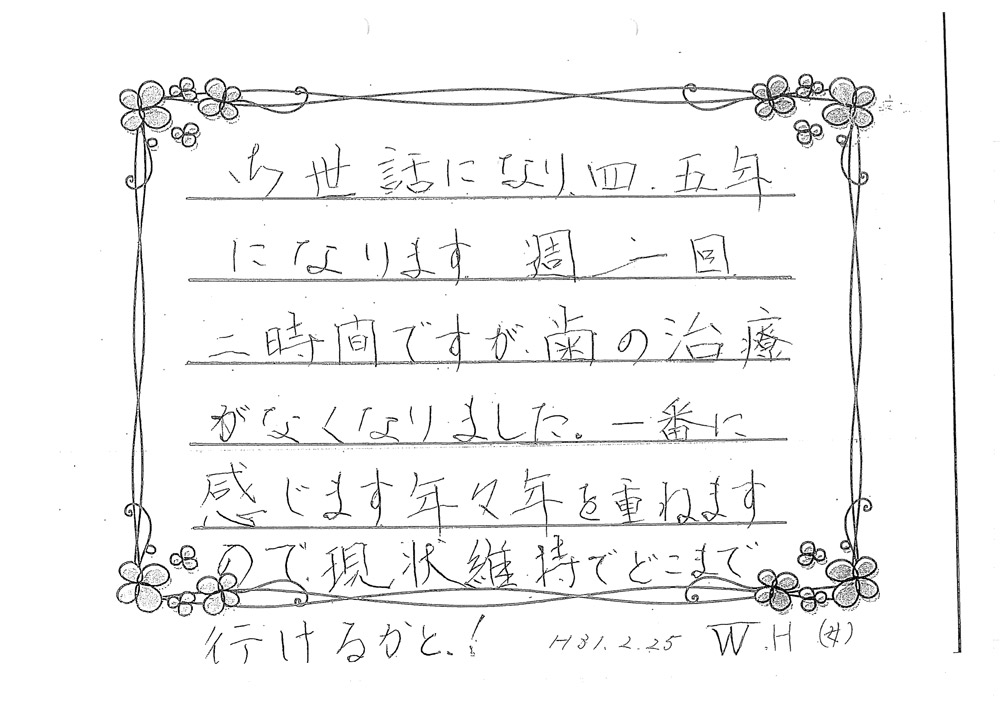 お世話になり、四、五年
になります 週一回
二時間ですが、歯の治療
がなくなりました。一番に
感じます年々年を重ねます
ので現状維持でどこまで
行けるかと、!
H31.2.25 W.H (女)